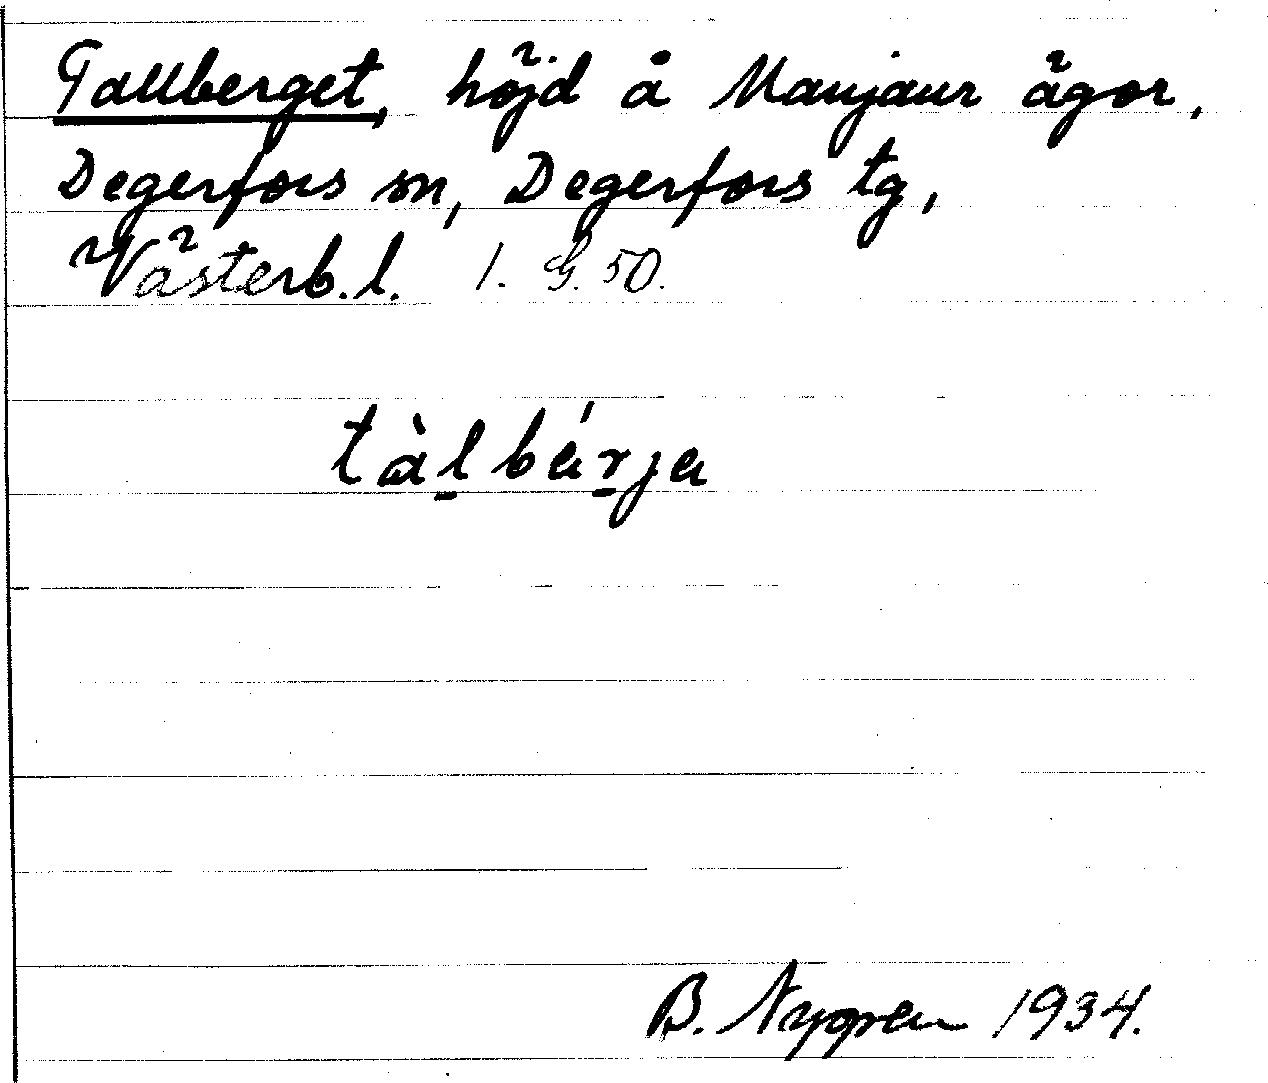 Tallberget, höjd å Manjaur ägor,
Degerfors sn, Degerfors tg,
Västerb. l. 1. G. 50.
tàl̠bár̠ja
B. Nygren 1934.